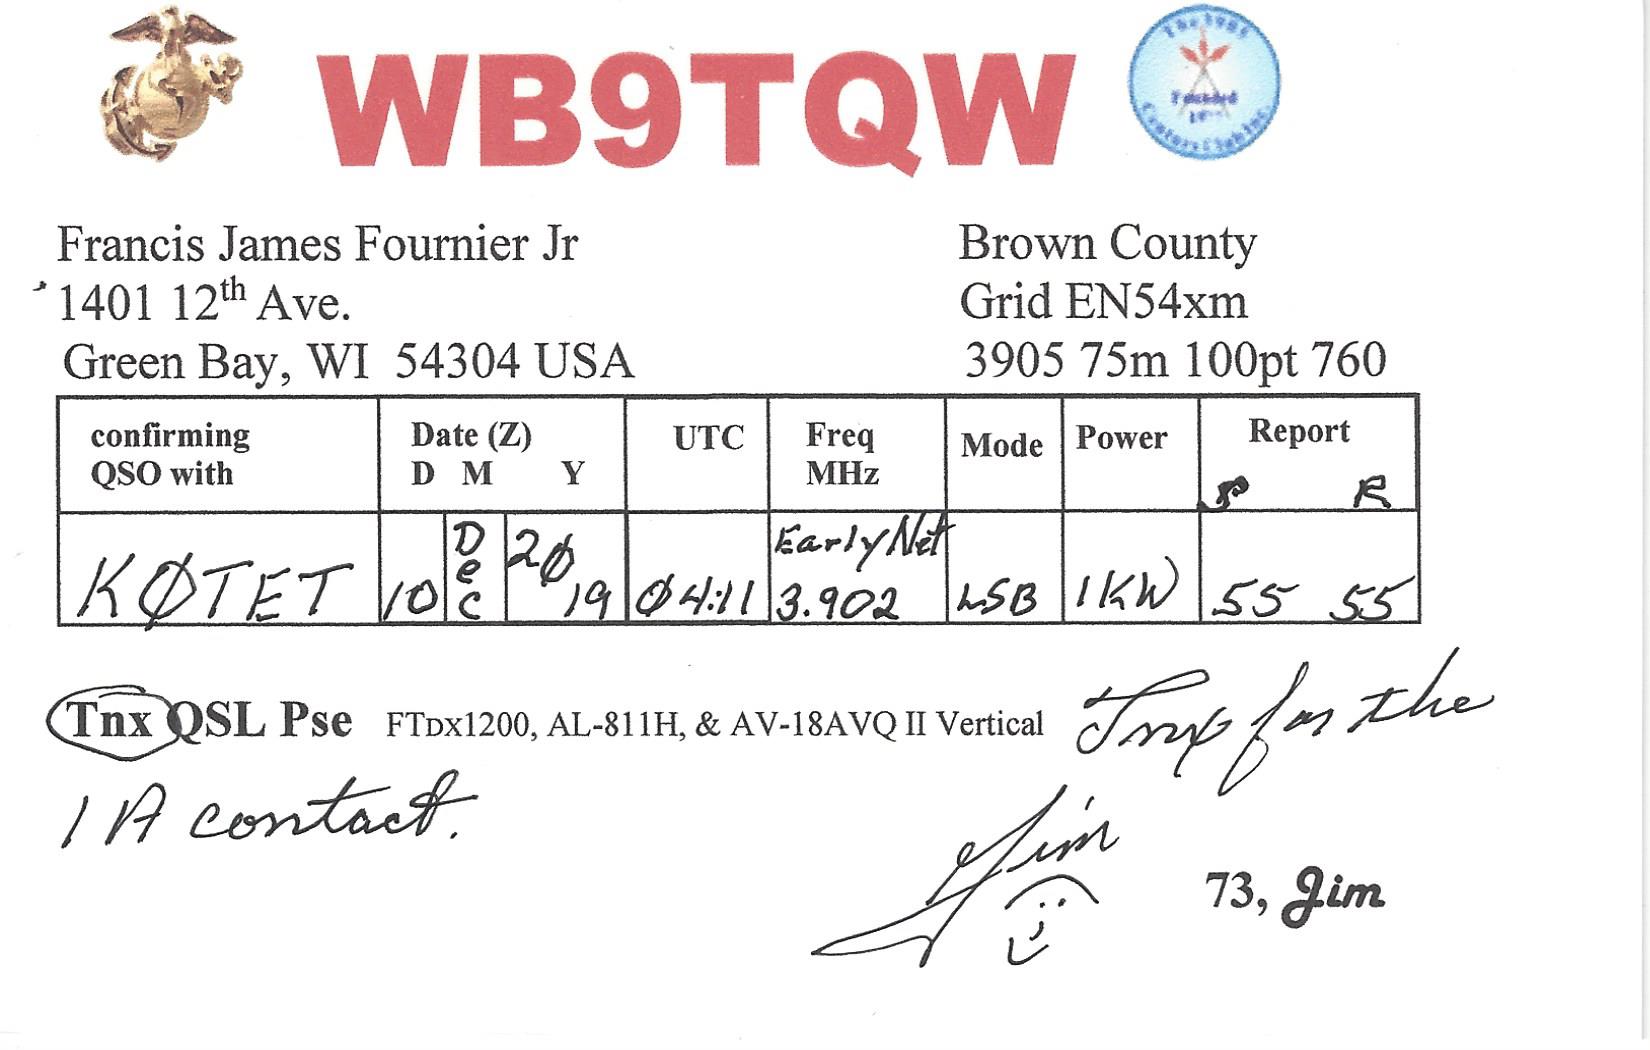 WB9TQW
The 3905
Founded
Century Club Inc.
Francis James Fournier Jr
1401 12th Ave.
Green Bay, WI 54304 USA
Brown County
Grid EN54xm
3905 75m 100pt 760
confirming QSO with Date (Z) D M Y UTC Freq MHz Mode Power Report R
KØTET 10 Dec 20 19 Ø4:11 Early Net 3.902 LSB 1KW 55 55
Tnx QSL Pse FTDX1200, AL-811H, & AV-18AVQ II Vertical Tnx for the
IA contact.
Jim
73, Jim